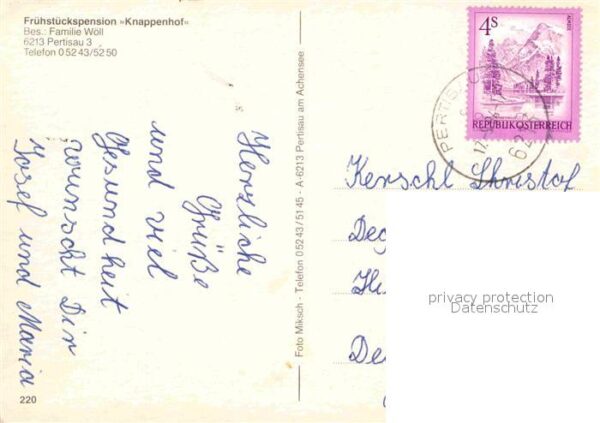 Frühstückspension »Knappenhof«
Bes.: Familie Wöll
6213 Pertisau 3
Telefon 0 52 43/52 50
Herzliche
Grüße
und viel
Gesundheit
wünscht Dir
Josef und Maria
220
Foto Miksch - Telefon 0 52 43 / 51 45 - A-6213 Pertisau am Achensee
4S
ALMSEE
REPUBLIK ÖSTERREICH
PERTISAU
62
Kerschl Christof
De
privacy protection
Datenschutz
De